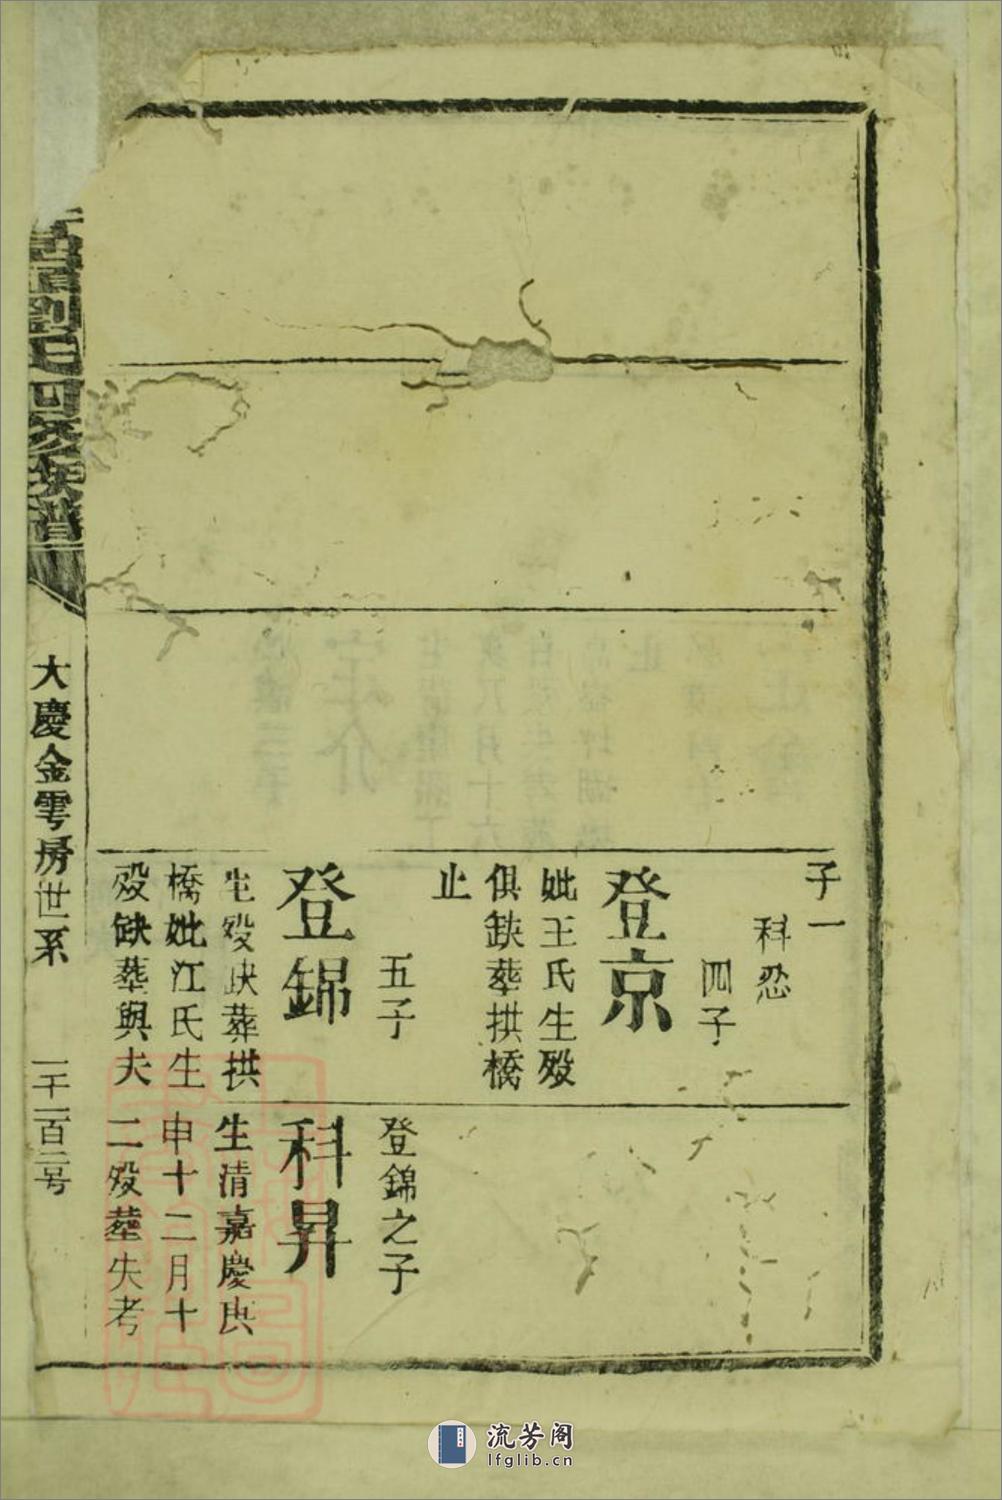 子一
科忍
四子
登京
妣王氏生殁
俱缺葬拱橋
止
五子
登錦
生殁缺葬拱
橋妣江氏生
殁缺葬與夫
登錦之子
科昇
生清嘉慶庚
申十二月十
二殁葬失考
劉氏四修族譜
大慶金雩房世系
一千一百二号
流芳阁
lfglib.cn